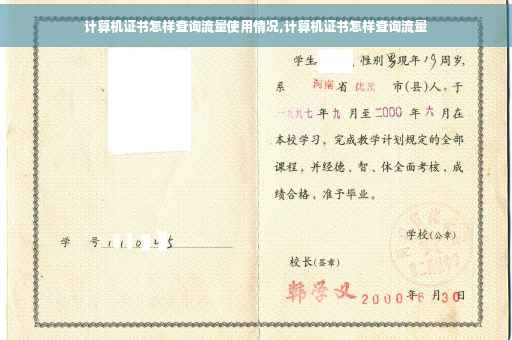 计算机证书怎样查询流量使用情况,计算机证书怎样查询流量
学生 , 性别男现年19周岁,
系 河南省 市(县)人。于
一九九七年九月至二000年六月在
本校学习,完成教学计划规定的全部
课程,并经德、智、体全面考核,成
绩合格,准予毕业。
学校(公章)
学 号
校长(签章)
韩学义 2000年6月30日